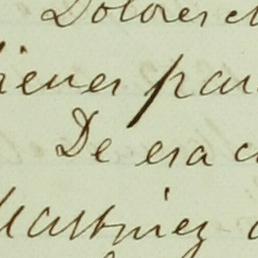 Dolores el
ienes par
De esa c
Martinez